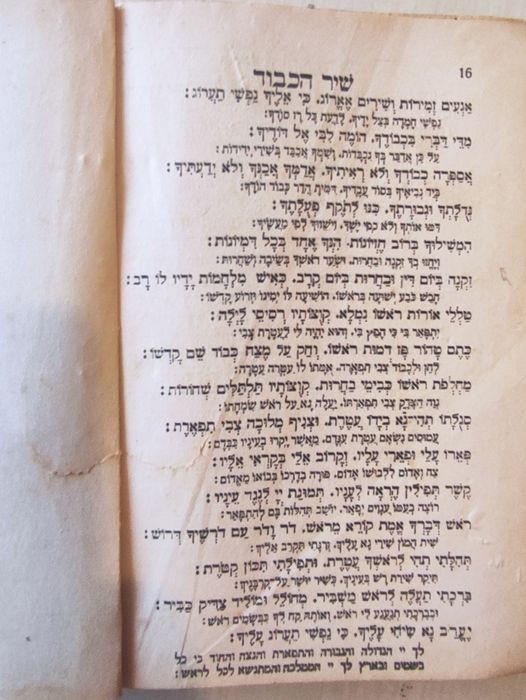 16
שיר הכבוד
אַנְעִים זְמִירוֹת וְשִׁירִים אֶאֱרוֹג. כִּי אֵלֶיךָ נַפְשִׁי תַעֲרוֹג:
נַפְשִׁי חָמְדָה בְּצֵל יָדֶיךָ. לָדַעַת כָּל רָז סוֹדֶךָ:
מִדֵּי דַבְּרִי בִּכְבוֹדֶךָ. הוֹמֶה לִבִּי אֶל דּוֹדֶיךָ:
עַל כֵּן אֲדַבֵּר בְּךָ נִכְבָּדוֹת. וְשִׁמְךָ אֲכַבֵּד בְּשִׁירֵי יְדִידוֹת:
אֲסַפְּרָה כְבוֹדְךָ וְלֹא רְאִיתִיךָ. אֲדַמְּךָ אֲכַנְּךָ וְלֹא יְדַעְתִּיךָ:
בְּיַד נְבִיאֶיךָ בְּסוֹד עֲבָדֶיךָ. דִּמִּיתָ הֲדַר כְּבוֹד הוֹדֶךָ:
גְּדֻלָּתְךָ וּגְבוּרָתֶךָ. כִּנּוּ לְתֹקֶף פְּעֻלָּתֶךָ:
דִּמּוּ אוֹתְךָ וְלֹא כְפִי יֶשְׁךָ. וַיְשַׁוּוּךָ לְפִי מַעֲשֶׂיךָ:
הִמְשִׁילוּךָ בְּרוֹב חֶזְיוֹנוֹת. הִנְּךָ אֶחָד בְּכָל דִּמְיוֹנוֹת:
וַיֶּחֱזוּ בְךָ זִקְנָה וּבַחֲרוּת. וּשְׂעַר רֹאשְׁךָ בְּשֵׂיבָה וְשַׁחֲרוּת:
זִקְנָה בְּיוֹם דִּין וּבַחֲרוּת בְּיוֹם קְרָב. כְּאִישׁ מִלְחָמוֹת יָדָיו לוֹ רָב:
חָבַשׁ כּוֹבַע יְשׁוּעָה בְּרֹאשׁוֹ. הוֹשִׁיעָה לּוֹ יְמִינוֹ וּזְרוֹעַ קָדְשׁוֹ:
טַלְלֵי אוֹרוֹת רֹאשׁוֹ נִמְלָא. קְוֻצּוֹתָיו רְסִיסֵי לָיְלָה:
יִתְפָּאֵר בִּי כִּי חָפֵץ בִּי. וְהוּא יִהְיֶה לִּי לַעֲטֶרֶת צְבִי:
כֶּתֶם טָהוֹר פָּז דְּמוּת רֹאשׁוֹ. וְחַק עַל מֵצַח כְּבוֹד שֵׁם קָדְשׁוֹ:
לְחֵן וּלְכָבוֹד צְבִי תִפְאָרָה. אֻמָּתוֹ לוֹ עִטְּרָה עֲטָרָה:
מַחְלְפוֹת רֹאשׁוֹ כְּבִימֵי בַחֲרוּת. קְוֻצּוֹתָיו תַּלְתַּלִּים שְׁחוֹרוֹת:
נְוֵה הַצֶּדֶק צְבִי תִפְאַרְתּוֹ. יַעֲלֶה נָּא עַל רֹאשׁ שִׂמְחָתוֹ:
סְגֻלָּתוֹ תְּהִי־נָא בְיָדוֹ עֲטֶרֶת. וּצְנִיף מְלוּכָה צְבִי תִפְאֶרֶת:
עֲמוּסִים נְשָׂאָם עֲטֶרֶת עִנְּדָם. מֵאֲשֶׁר יָקְרוּ בְעֵינָיו כִּבְּדָם:
פְּאֵרוֹ עָלַי וּפְאֵרִי עָלָיו. וְקָרוֹב אֵלַי בְּקָרְאִי אֵלָיו:
צַח וְאָדוֹם לִלְבוּשׁוֹ אָדוֹם. פּוּרָה בְּדָרְכוֹ בְּבוֹאוֹ מֵאֱדוֹם:
קֶשֶׁר תְּפִילִּין הֶרְאָה לֶעָנָיו. תְּמוּנַת יְיָ לְנֶגֶד עֵינָיו:
רוֹצֶה בְעַמּוֹ עֲנָוִים יְפָאֵר. יוֹשֵׁב תְּהִלּוֹת בָּם לְהִתְפָּאֵר:
רֹאשׁ דְּבָרְךָ אֱמֶת קוֹרֵא מֵרֹאשׁ. דּוֹר וָדוֹר עַם דּוֹרֶשְׁךָ דְּרוֹשׁ:
שִׁית הֲמוֹן שִׁירַי נָא עָלֶיךָ. וְרִנָּתִי תִּקְרַב אֵלֶיךָ:
תְּהִלָּתִי תְּהִי לְרֹאשְׁךָ עֲטֶרֶת. וּתְפִילָּתִי תִּכּוֹן קְטֹרֶת:
תִּיקַר שִׁירַת רָשׁ בְּעֵינֶיךָ. כַּשִּׁיר יוּשַׁר עַל־קָרְבָּנֶיךָ:
בִּרְכָתִי תַעֲלֶה לְרֹאשׁ מַשְׁבִּיר. מְחוֹלֵל וּמוֹלִיד צַדִּיק כַּבִּיר:
וּבְבִרְכָתִי תְנַעֲנַע לִי רֹאשׁ. וְאוֹתָהּ קַח לְךָ כִּבְשָׂמִים רֹאשׁ:
יֶעֱרַב נָא שִׂיחִי עָלֶיךָ. כִּי נַפְשִׁי תַעֲרוֹג אֵלֶיךָ:
לך יי הגדולה והגבורה והתפארת והנצח וההוד כי כל
בשמים ובארץ לך יי הממלכה והמתנשא לכל לראש: